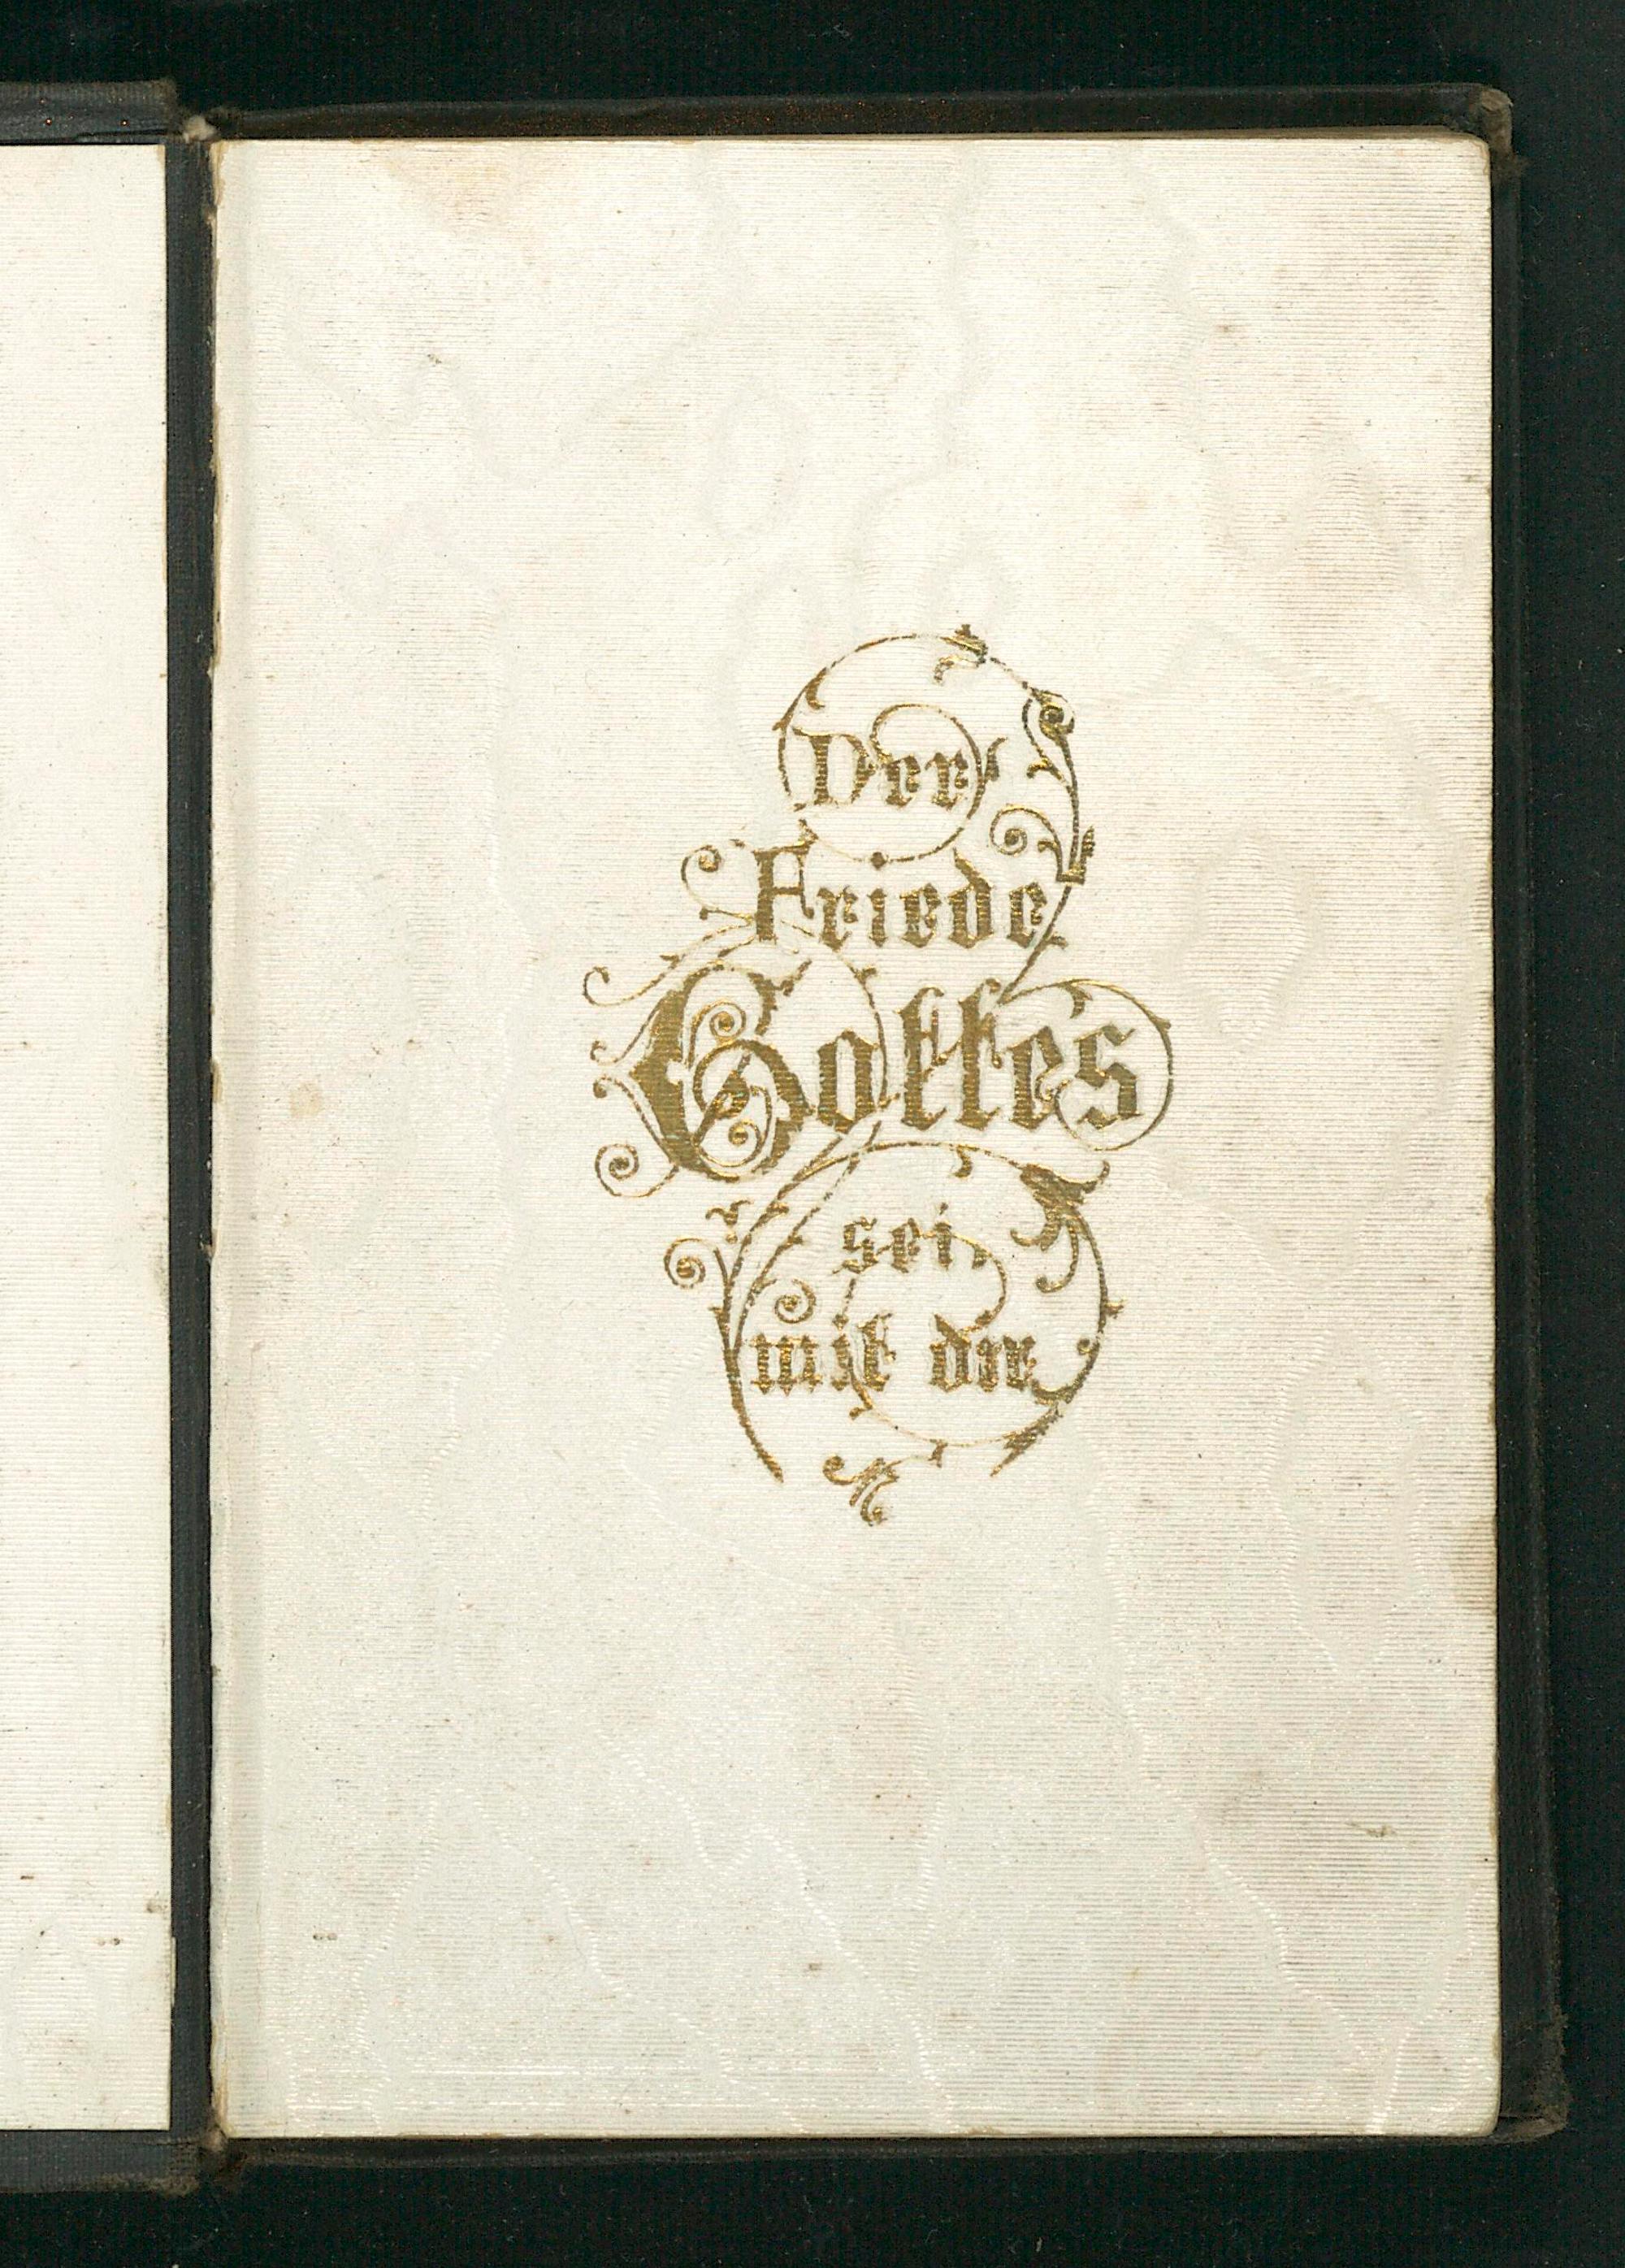 Der
Friede
Gottes
sei
mit dir